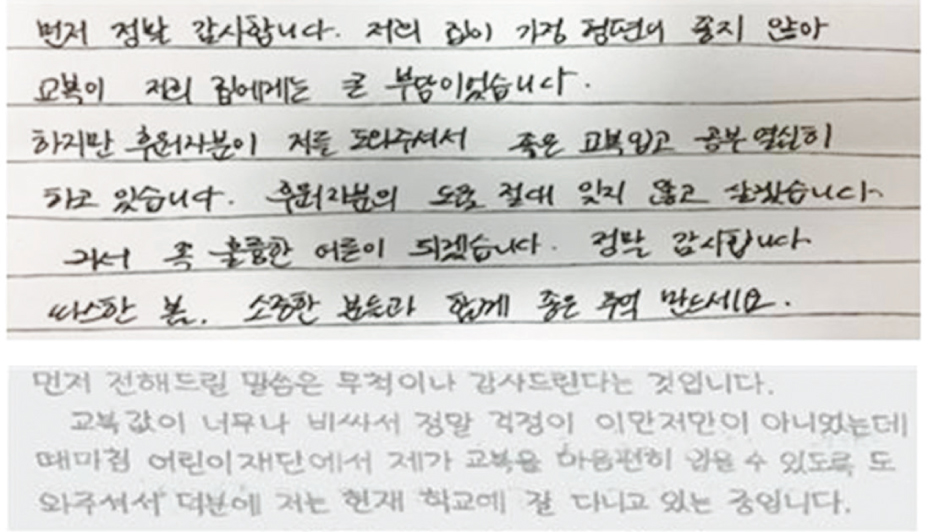 먼저 정말 감사합니다. 저희 집이 가정 형편이 좋지 않아
교복이 저희 집에게는 큰 부담이었습니다.
하지만 후원자분이 저를 도와주셔서 좋은 교복입고 공부 열심히
하고 있습니다. 후원자분의 도움 절대 잊지 않고 살겠습니다.
커서 꼭 훌륭한 어른이 되겠습니다. 정말 감사합니다.
따스한 봄, 소중한 분들과 함께 좋은 추억 만드세요.
먼저 전해드릴 말씀은 무척이나 감사드린다는 것입니다.
교복값이 너무나 비싸서 정말 걱정이 이만저만이 아니였는데
때마침 어린이재단에서 제가 교복을 마음편히 입을 수 있도록 도
와주셔서 덕분에 저는 현재 학교에 잘 다니고 있는 중입니다.